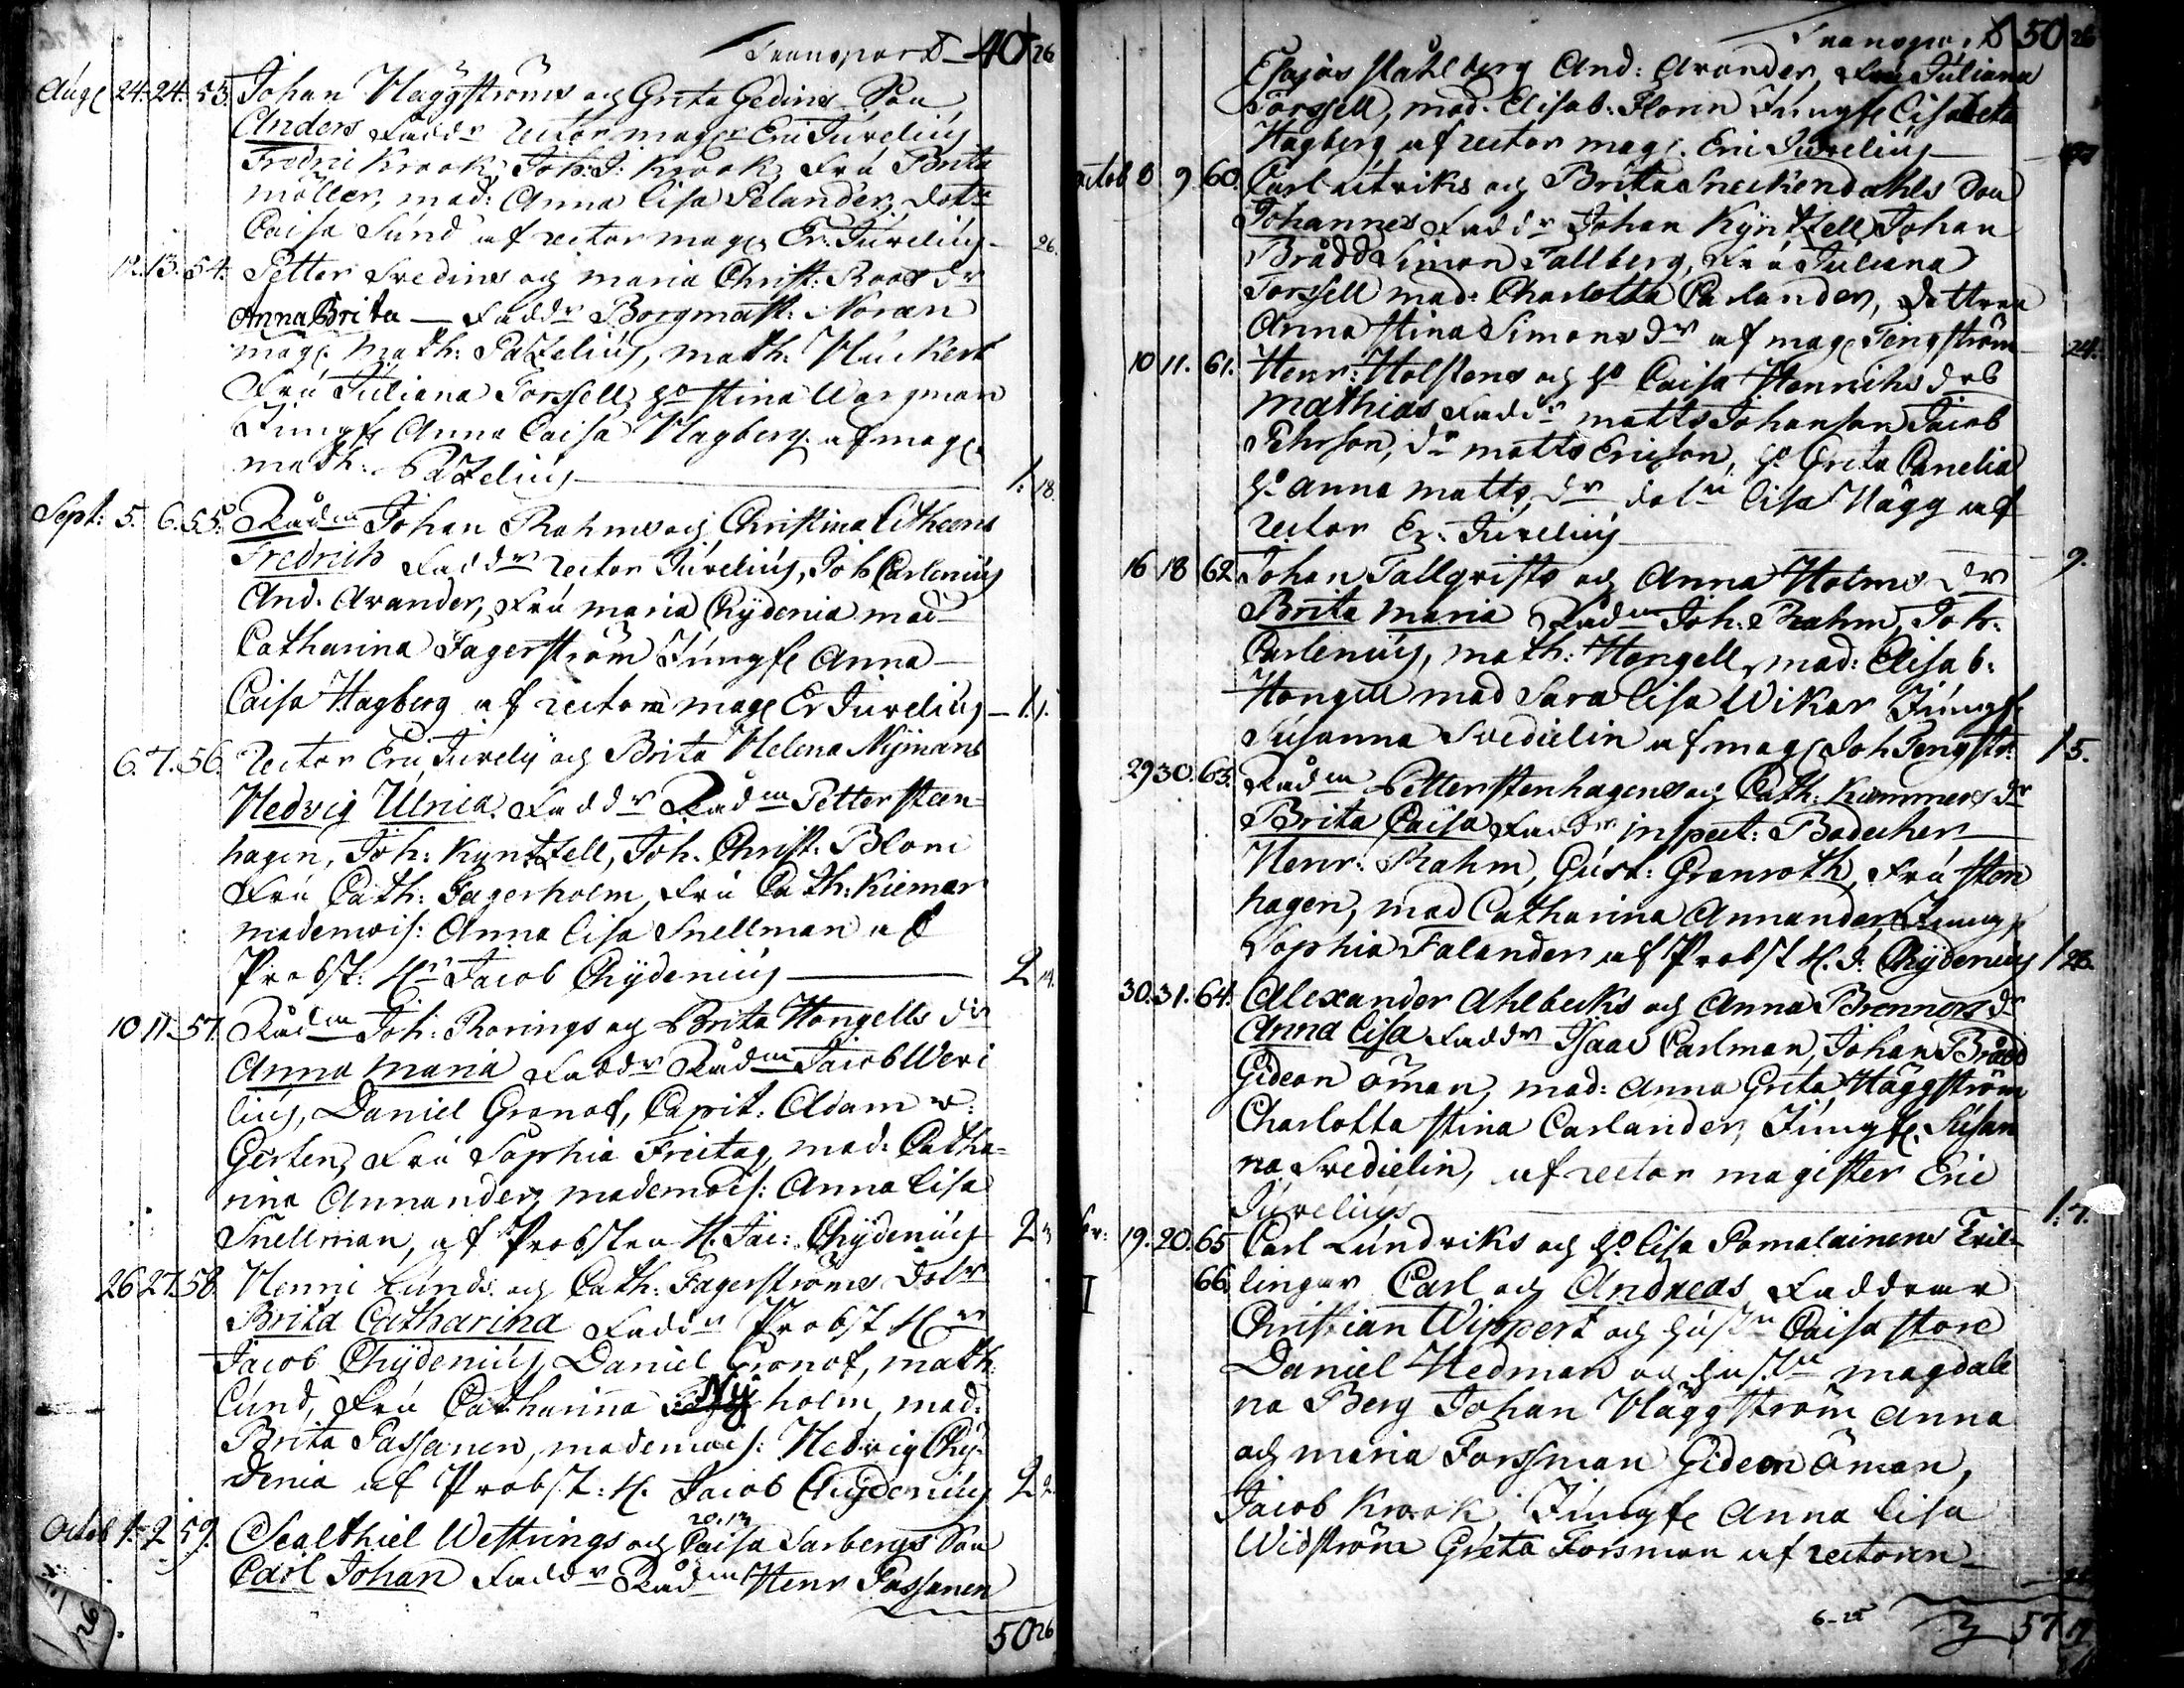 Transport 40 26
Aug 24. 24. 53. Johan Häggströms och Greta Gedins Son
Anders Faddr rector mag Eric Jurelius
Fredric Krook, Joh: J: Krook, Fru Brita
möller, mad: Anna Lisa Pelander, dotr
Caisa Sund af rector mag Er. Jurelius 26.
12. 13. 54. Petter Svedins och maria Christ: Roos dr
Anna Brita — Faddr Borgmäst: Noraen
mag math: Pazelius, math: Hückert
Fru Juliana Forssell, ho stina Wargman
Jungf Anna Caisa Hagberg af mag
math: Pazelius 1. 18.
Sept: 5. 6. 55. Rådm Johan Rahms och Christina Litheens
Fredrich Faddr rector Jurelius, Joh Carlenius
And. Arander, Fru maria Chydenia mad
Catharina Fagerström Jungf Anna
Caisa Hagberg af rector mag Er Jurelius 1. 1.
6. 7. 56. Rector Eric Jurely och Brita Helena Nymans
Hedvig Ulrica. Faddr Rådm Petter steen=
hagen, Joh: Kyntzell, Joh. Christ: Blom
Fru Cath: Fagerholm, Fru Cath: Kiemer
mademois: Anna Lisa Snellman af
Probst: Hr Jacob Chydenius 2 14.
10 11. 57. Rådm Joh: Rorings och Brita Hongells dr
Anna Maria Faddr Rådm Jacob Weri
lius, Daniel Gronof, Capit: Adam v:
Gerten, Fru Sophia Freitag, mad: Catha=
rina Annander, mademois: Anna Lisa
Snellman, af Probsten H. Jac: Chydenius 2
26 27. 58. Henric Lunds och Cath: Fagerströms dotr
Brita Catharina Faddr Probst Hr
Jacob Chydenius, Daniel Gronof, math:
Lund, Fru Catharina Nyholm, mad:
Brita Passanen, mademois: Hedvig Chy
denia af Probst: H. Jacob Chydenius 2
20.13
Octob 1. 2. 59. Sealthiel Westrings och Caisa Sarbergs Son
Carl Johan Faddr Rådm Henr Passanen
50 26

Transport 50 26
Esaias stahlberg And: Arander, Fru Juliana
Forssell, mad: Elisab: Florin Jungf Elisabeta
Hagberg af rector mag. Eric Jurelius
octob 8 9. 60. Carl ... och Brita Sneckendahls Son
Johannes Faddr Johan Kyntzell Johan
Brådd Simon Tallberg, Fru Juliana
Forssell mad: Charlotta Carlander, dottren
Anna stina Simons dr af mag Tengström 24.
10 11. 61. Henr: Holstens och ho Caisa Henrichs drs
Mathias Faddr matts Johanson Jacob
Pehrson, dr matts Ericson, ho Greta Canelia
ho anna matts dr dotn Lisa Hägg af
rector Er. Jurelius 9.
16 18 62. Johan Tallqvists och Anna Holms dr
Brita maria Rådm Joh: Rahm, Joh.
Carlenius, math: Hongell, mad: Elisab:
Hongell mad Sara Lisa Wikar Jungf
Susanna Svedielin af mag Joh Tengstr: 1 5.
29 30. 63. Rådm Petter stenhagens och Cath: Kammers dr
Brita Caisa Faddr inspect: Bodecher
Henr: Rahm, Gust: Granroth, Fru sten
hagen, mad Catharina Annander, Jungf
Sophia Falander af Probst H. J: Chydenius 1 28.
30. 31. 64. Alexander Ahlbecks och Anna Brenners dr
Anna Lisa Faddr Isaac Carlman, Johan Brådd
Gideon öman, mad: anna Greta Häggström
Charlotta stina Carlander, Jungf Susan
na Svedielin, af rector magister Eric
Jurelius 1. 7.
br: 19. 20. 65 Carl Lundriks och ho Lisa Pomalainens Tril=
66. lingar Carl och Andreas Faddrar
Christian Wippert och hustru Caisa store
Daniel Hedman och hustru magdale
na Berg Johan Häggström Anna
och maria Forssman Gideon öman,
Jacob Krook, Jungf Anna Lisa
Widström Greta Forsman af rectoren
6-25 57